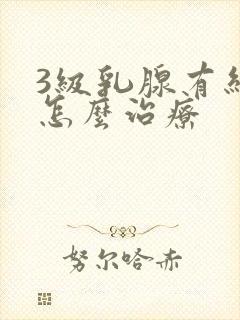 3級乳腺有
怎麼治療
努尔哈赤